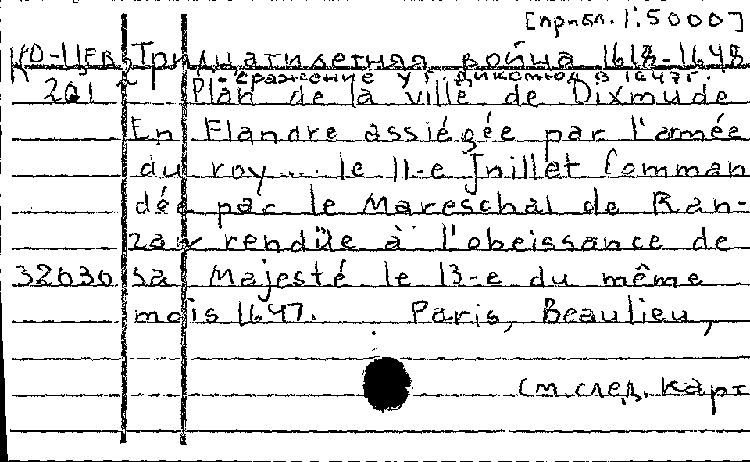 [прибл. 1:5000]
КО-11ЕВ Тридцатилетняя война 1618-1648
Сражение у г. в 1647г.
201 Plan de la ville de Dixmude
En Flandre assiégée par l'armée
du roy... le 11-e Jnillet Comman
dée par le Mareschal de Ran-
zau rendüe à l'obeissance de
32030 sa Majesté le 13-e du même
mois 1647. Paris, Beaulieu,
См. след. карт